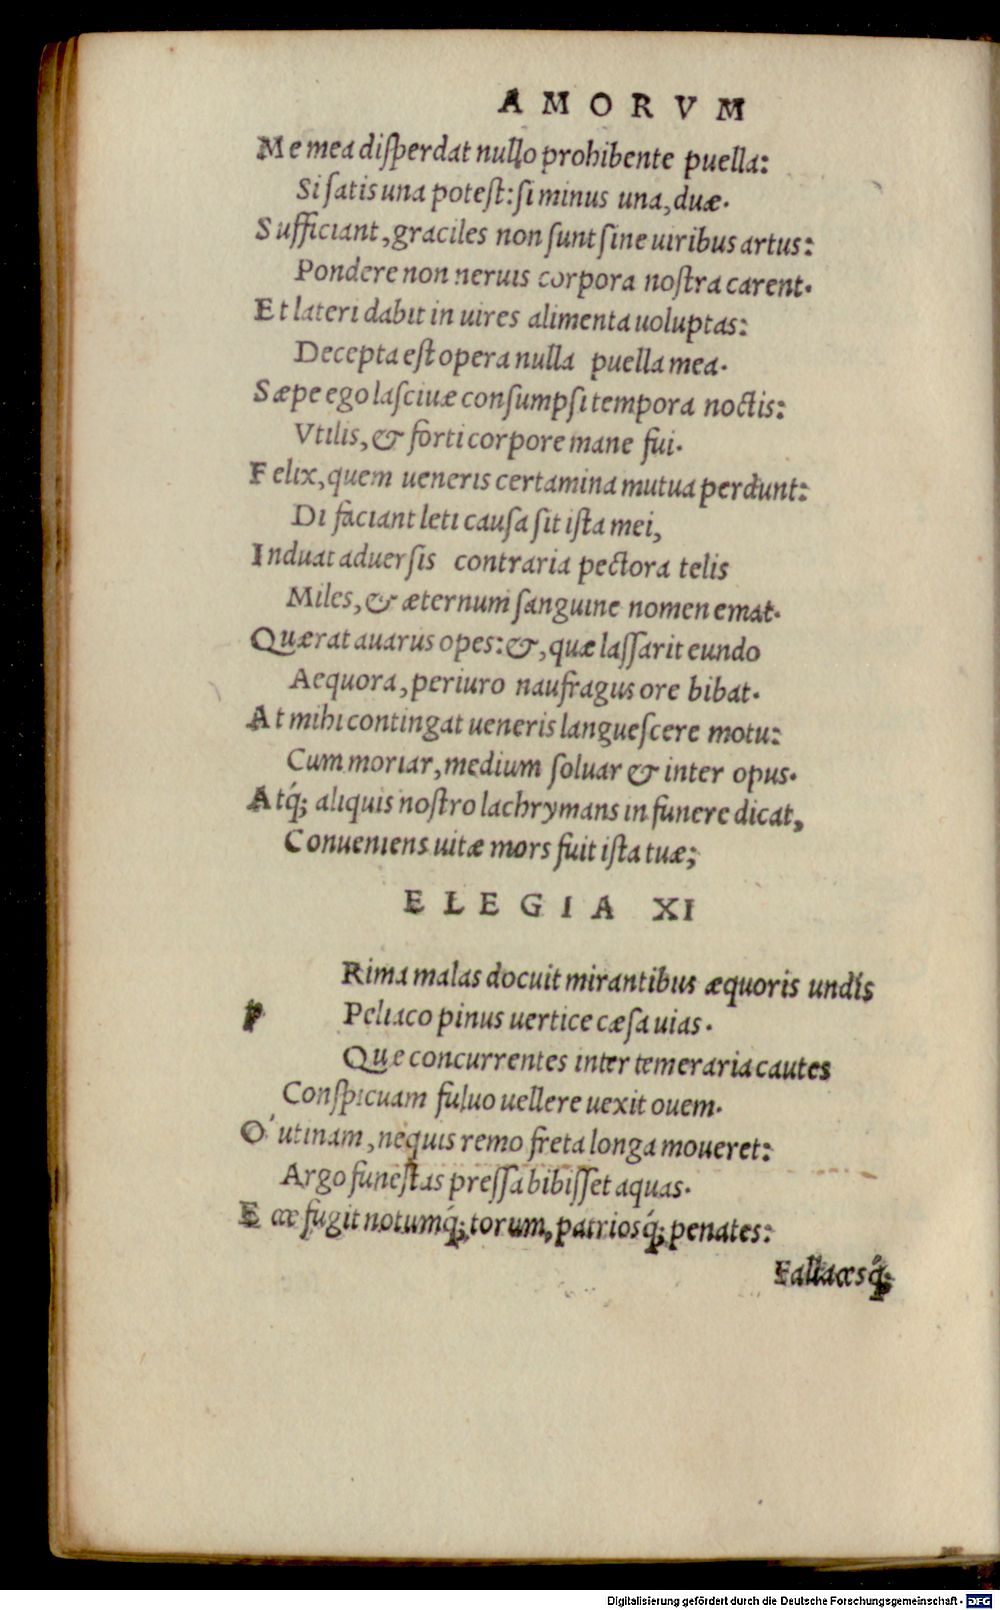 AMORVM
Me mea diſperdat nullo prohibente puella:
Si ſatis una poteſt: ſi minus una, duæ.
Sufficiant, graciles non ſunt ſine uiribus artus:
Pondere non neruis corpora noſtra carent.
Et lateri dabit in uires alimenta uoluptas:
Decepta eſt opera nulla puella mea.
Sæpe ego laſciuæ conſumpſi tempora noctis:
Vtilis, & forti corpore mane fui.
Felix, quem ueneris certamina mutua perdunt:
Di faciant leti cauſa ſit iſta mei,
Induat aduerſis contraria pectora telis
Miles, & æternum ſanguine nomen emat.
Quærat auarus opes: &, quæ laſſarit eundo
Aequora, periuro naufragus ore bibat.
At mihi contingat ueneris langueſcere motu:
Cum moriar, medium ſoluar & inter opus.
Atq́; aliquis noſtro lachrymans in funere dicat,
Conueniens uitæ mors fuit iſta tuæ;
ELEGIA XI
Rima malas docuit mirantibus æquoris undis
p Peliaco pinus uertice cæſa uias.
Quæ concurrentes inter temeraria cautes
Conſpicuam fuluo uellere uexit ouem.
O' utinam, nequis remo freta longa moueret:
Argo funeſtas preſſa bibiſſet aquas.
Ecce fugit notumq́; torum, patriosq́; penates:
Fallacesq́;
Digitalisierung gefördert durch die Deutsche Forschungsgemeinschaft - DFG